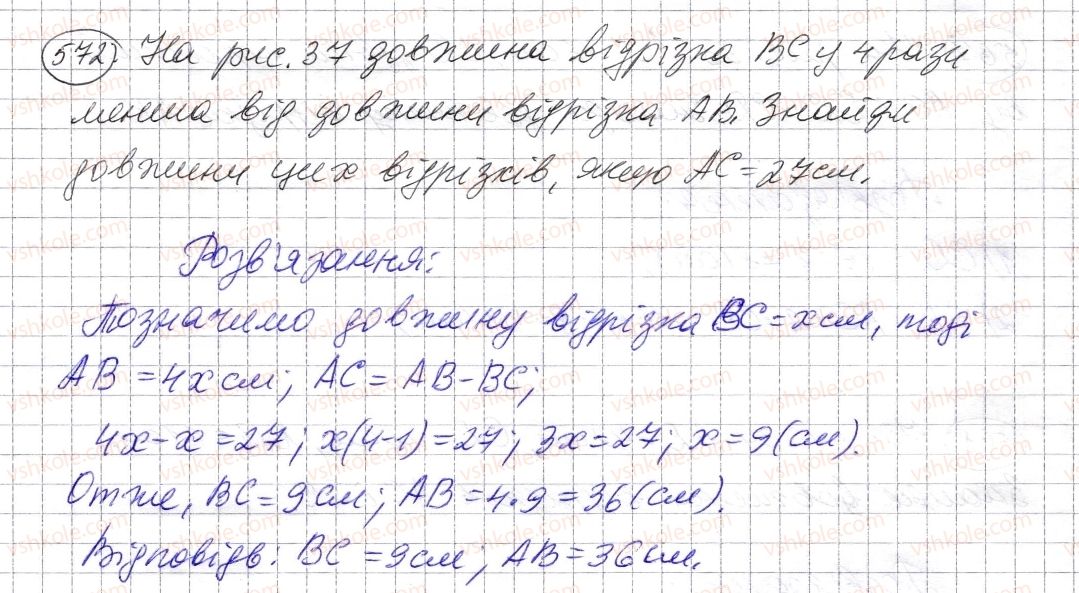 572) На рис. 37 довжина відрізка BC у 4 рази
менша від довжини відрізка AB. Знайди
довжини цих відрізків, якщо AC = 27 см.
Розв'язання:
Позначимо довжину відрізка BC = x см, тоді
AB = 4x см; AC = AB - BC;
4x - x = 27; x(4-1) = 27; 3x = 27; x = 9 (см).
Отже, BC = 9 см; AB = 4·9 = 36 (см).
Відповідь: BC = 9 см; AB = 36 см.
vshkole.com